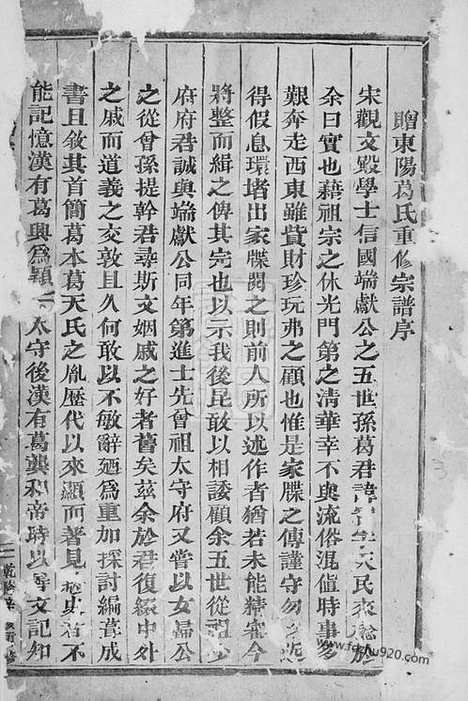 贈東陽葛氏重修宗譜序
宋觀文殿學士信國端獻公之五世孫葛君諱字天民來謁於
余曰實也藉祖宗之休光門第之清華幸不與流俗混值時事多
艱奔走西東雖貲財珍玩弗之顧也惟是家牒之傳謹守勿
得假息環堵出家牒閱之則前人所以述作者猶若未能精審今
將整而緝之俾其完也以示我後昆敢以相諉顧余五世從祖
府府君誠與端獻公同年第進士先曾祖太守府又嘗以女歸公
之從曾孫提幹君尋斯文姻戚之好者舊矣茲余於君復綴中外
之戚而道義之交敦且久何敢以不敏辭廼為重加採討編葺成
書且敘其首簡葛本葛天氏之胤歷代以來顯而著見史者不
能記憶漢有葛興為潁太守後漢有葛龔和帝時以善文記知
www.fozhu920.com